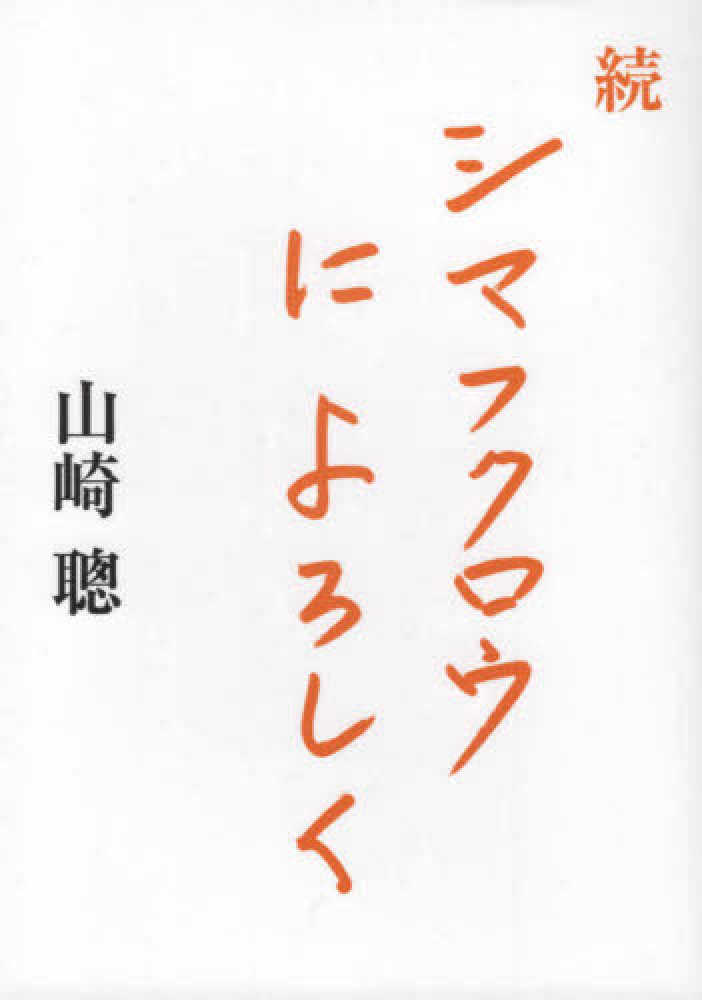 続
シマフクロウ
によろしく
山崎 聰